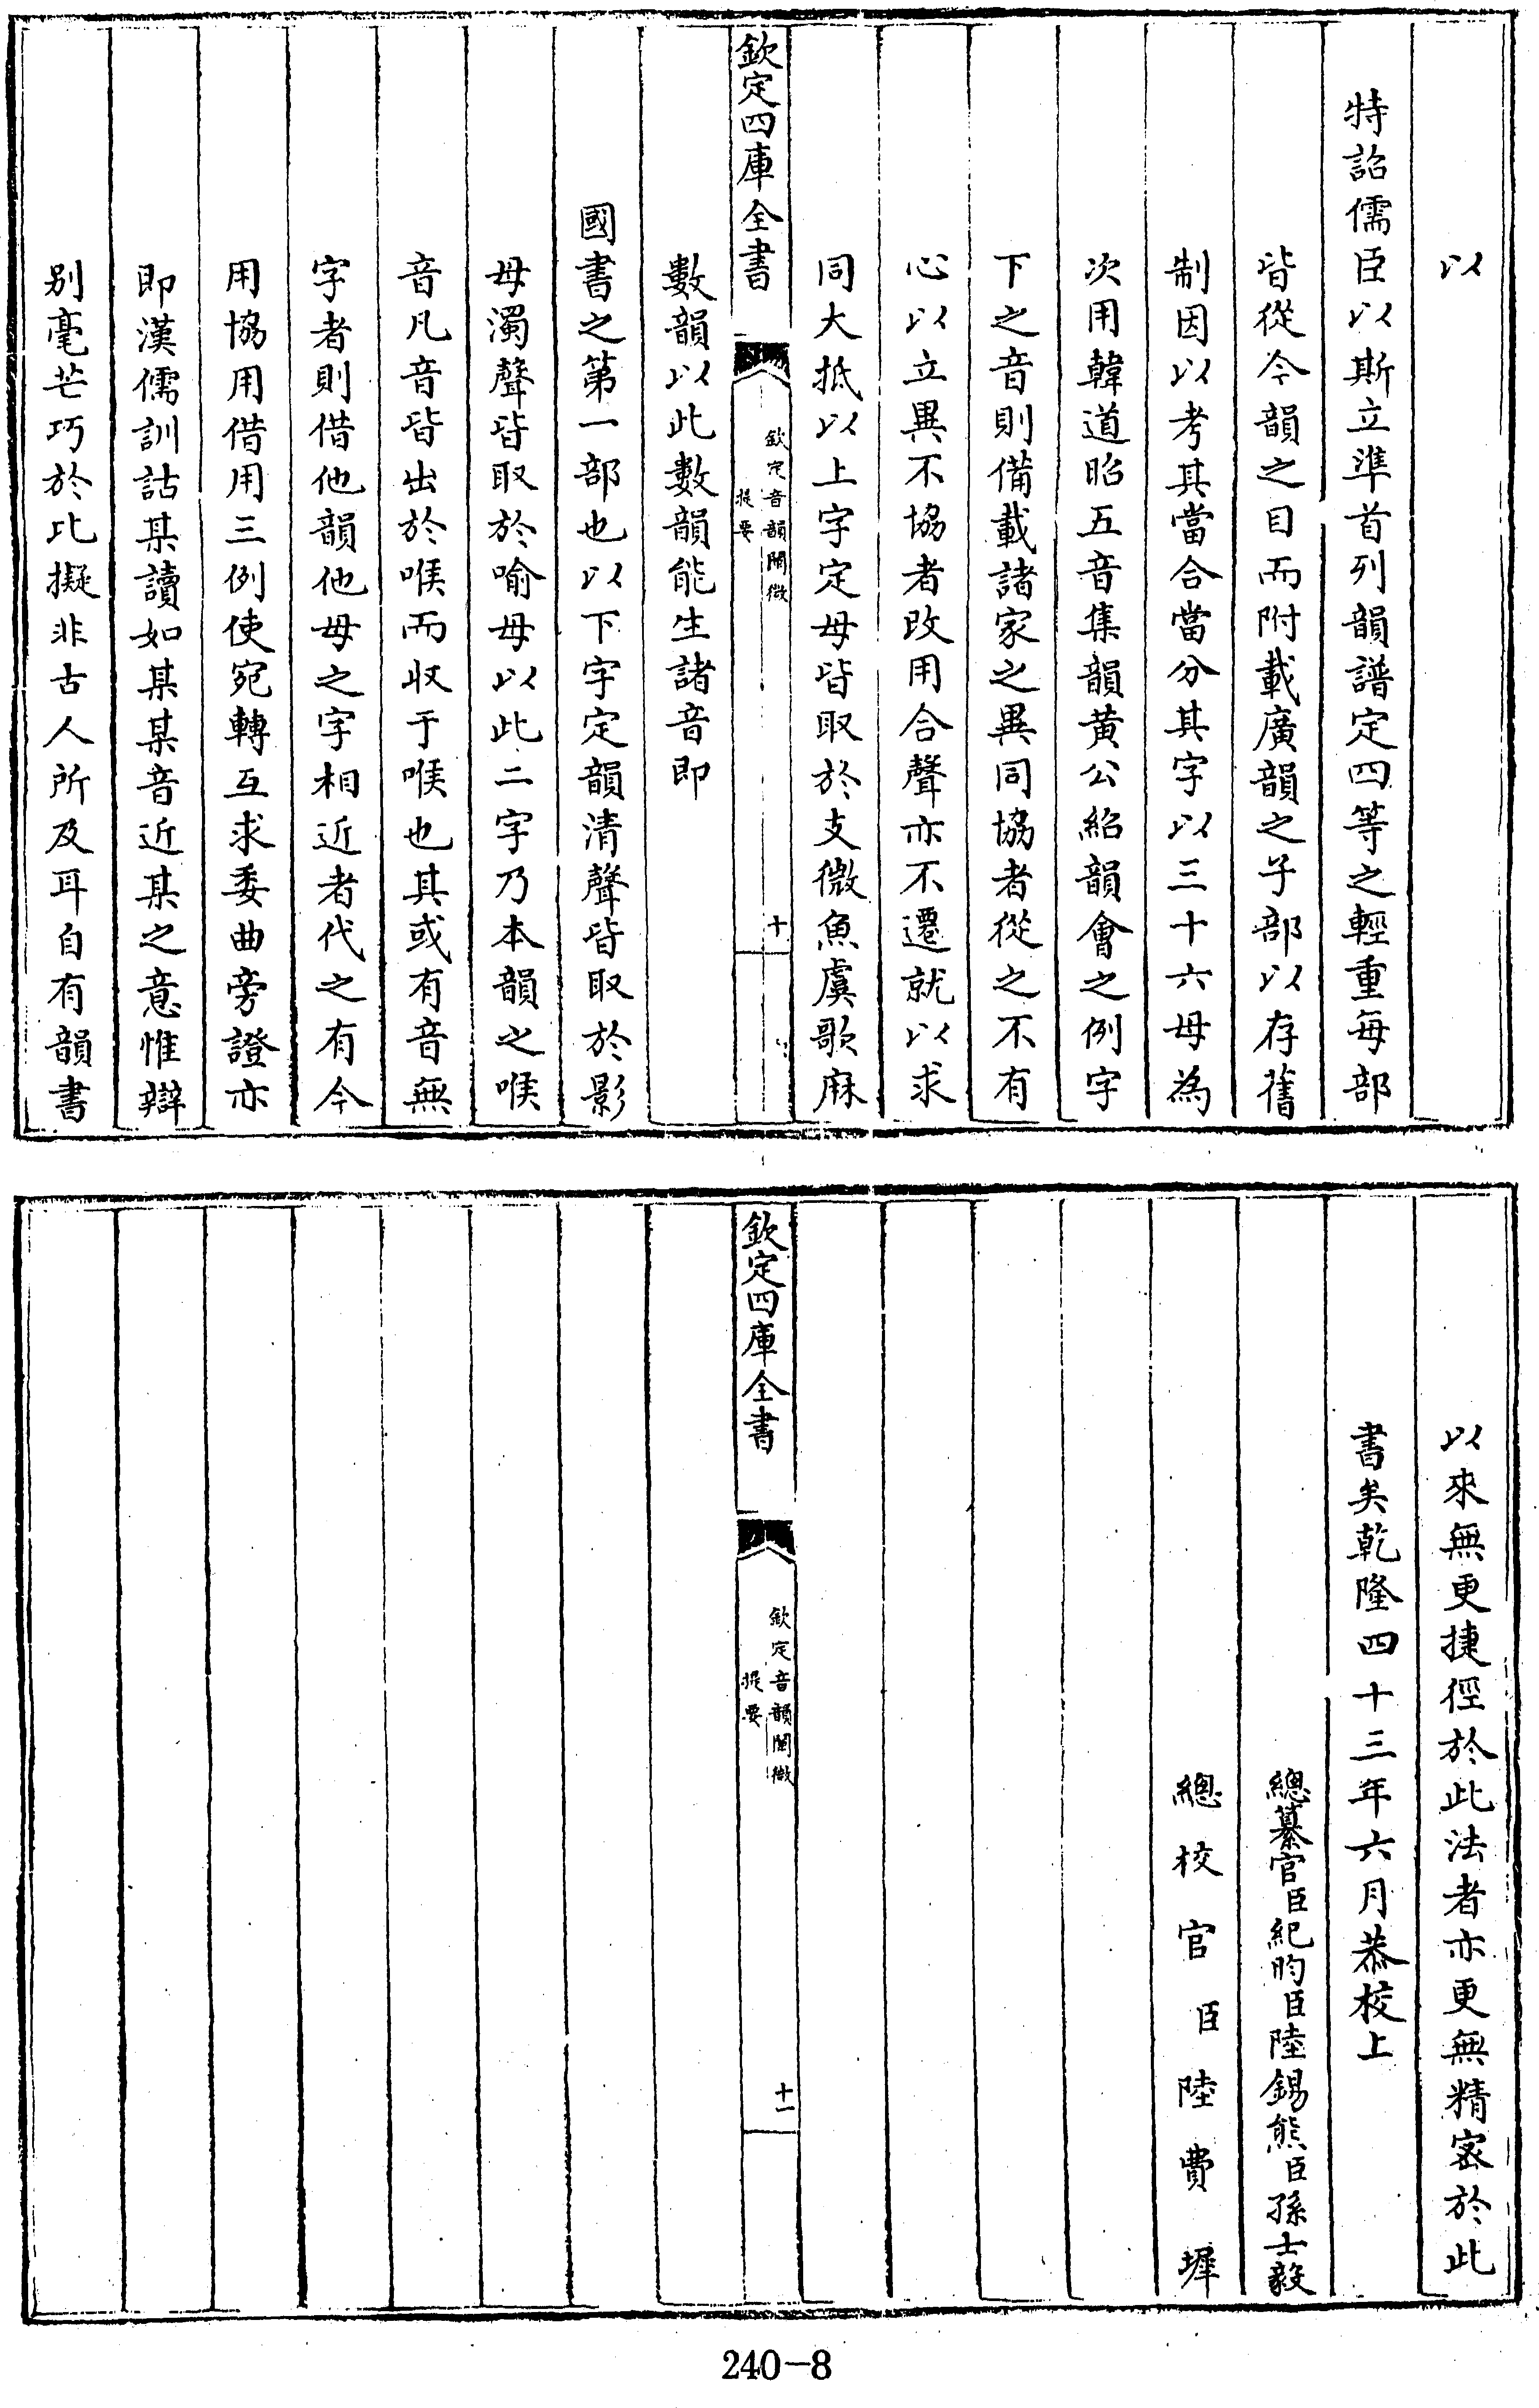 以
特詔儒臣以斯立準首列韻譜定四等之輕重每部
皆從今韻之目而附載廣韻之子部以存舊
制因以考其當合當分其字以三十六母為
次用韓道昭五音集韻黃公紹韻會之例字
下之音則備載諸家之異同協者從之不有
心以立異不協者改用合聲亦不遷就以求
同大抵以上字定母皆取於支微魚虞歌麻
欽定四庫全書
欽定音韻闡微
提要
十
數韻以此數韻能生諸音即
國書之第一部也以下字定韻清聲皆取於影
母濁聲皆取於喻母以此二字乃本韻之喉
音凡音皆出於喉而收于喉也其或有音無
字者則借他韻他母之字相近者代之有今
用協用借用三例使宛轉互求委曲旁證亦
即漢儒訓詁某讀如某某音近某之意惟辯
別毫芒巧於比擬非古人所及耳自有韻書
以來無更捷徑於此法者亦更無精密於此
書矣乾隆四十三年六月恭校上
總纂官臣紀昀臣陸錫熊臣孫士毅
總校官臣陸費墀
欽定四庫全書
欽定音韻闡微
提要
十一
240-8